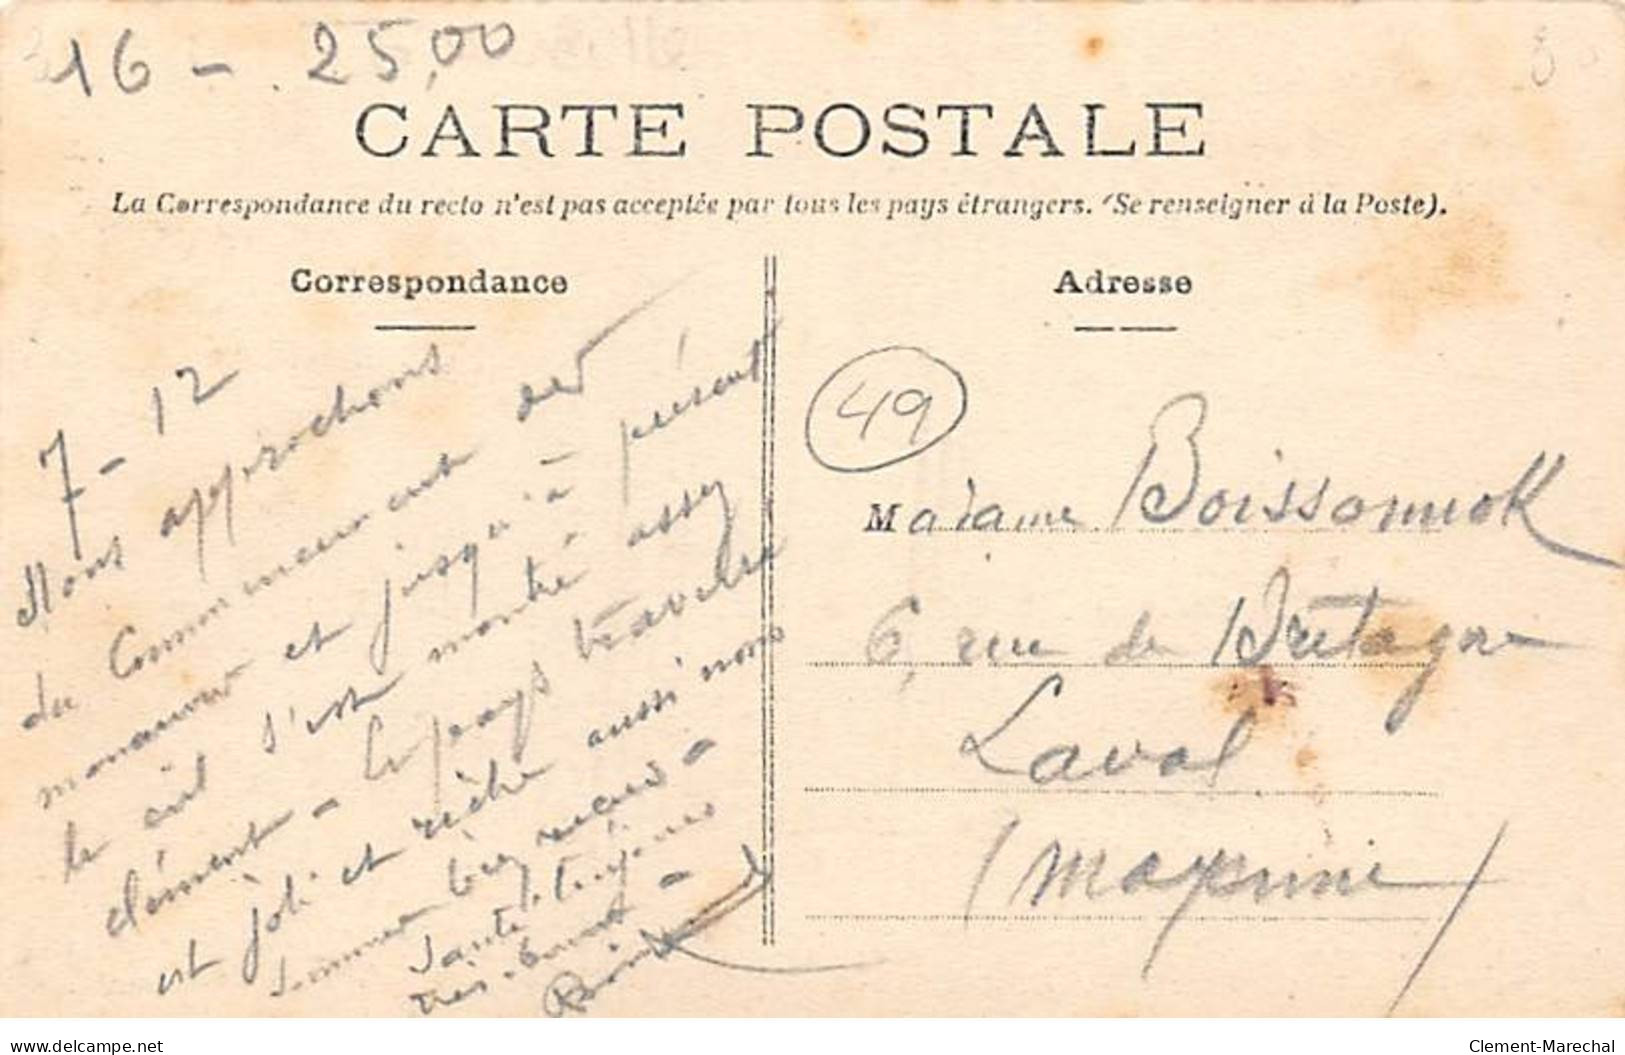 16 - 25,00
CARTE POSTALE
La Correspondance du recto n'est pas acceptée par tous les pays étrangers. (Se renseigner à la Poste).
Correspondance
7-12
Nous approchons
du Commencement des
manœuvres et jusqu'à présent
le ciel s'est montré assez
clément - Le pays traversé
est joli et riche aussi nous
sommes bien reçus -
Santé toujours
très bonne -
Adresse
49
Madame
6, rue de Bretagne
Laval
(Mayenne)
delcampe.net
Clement-Marechal